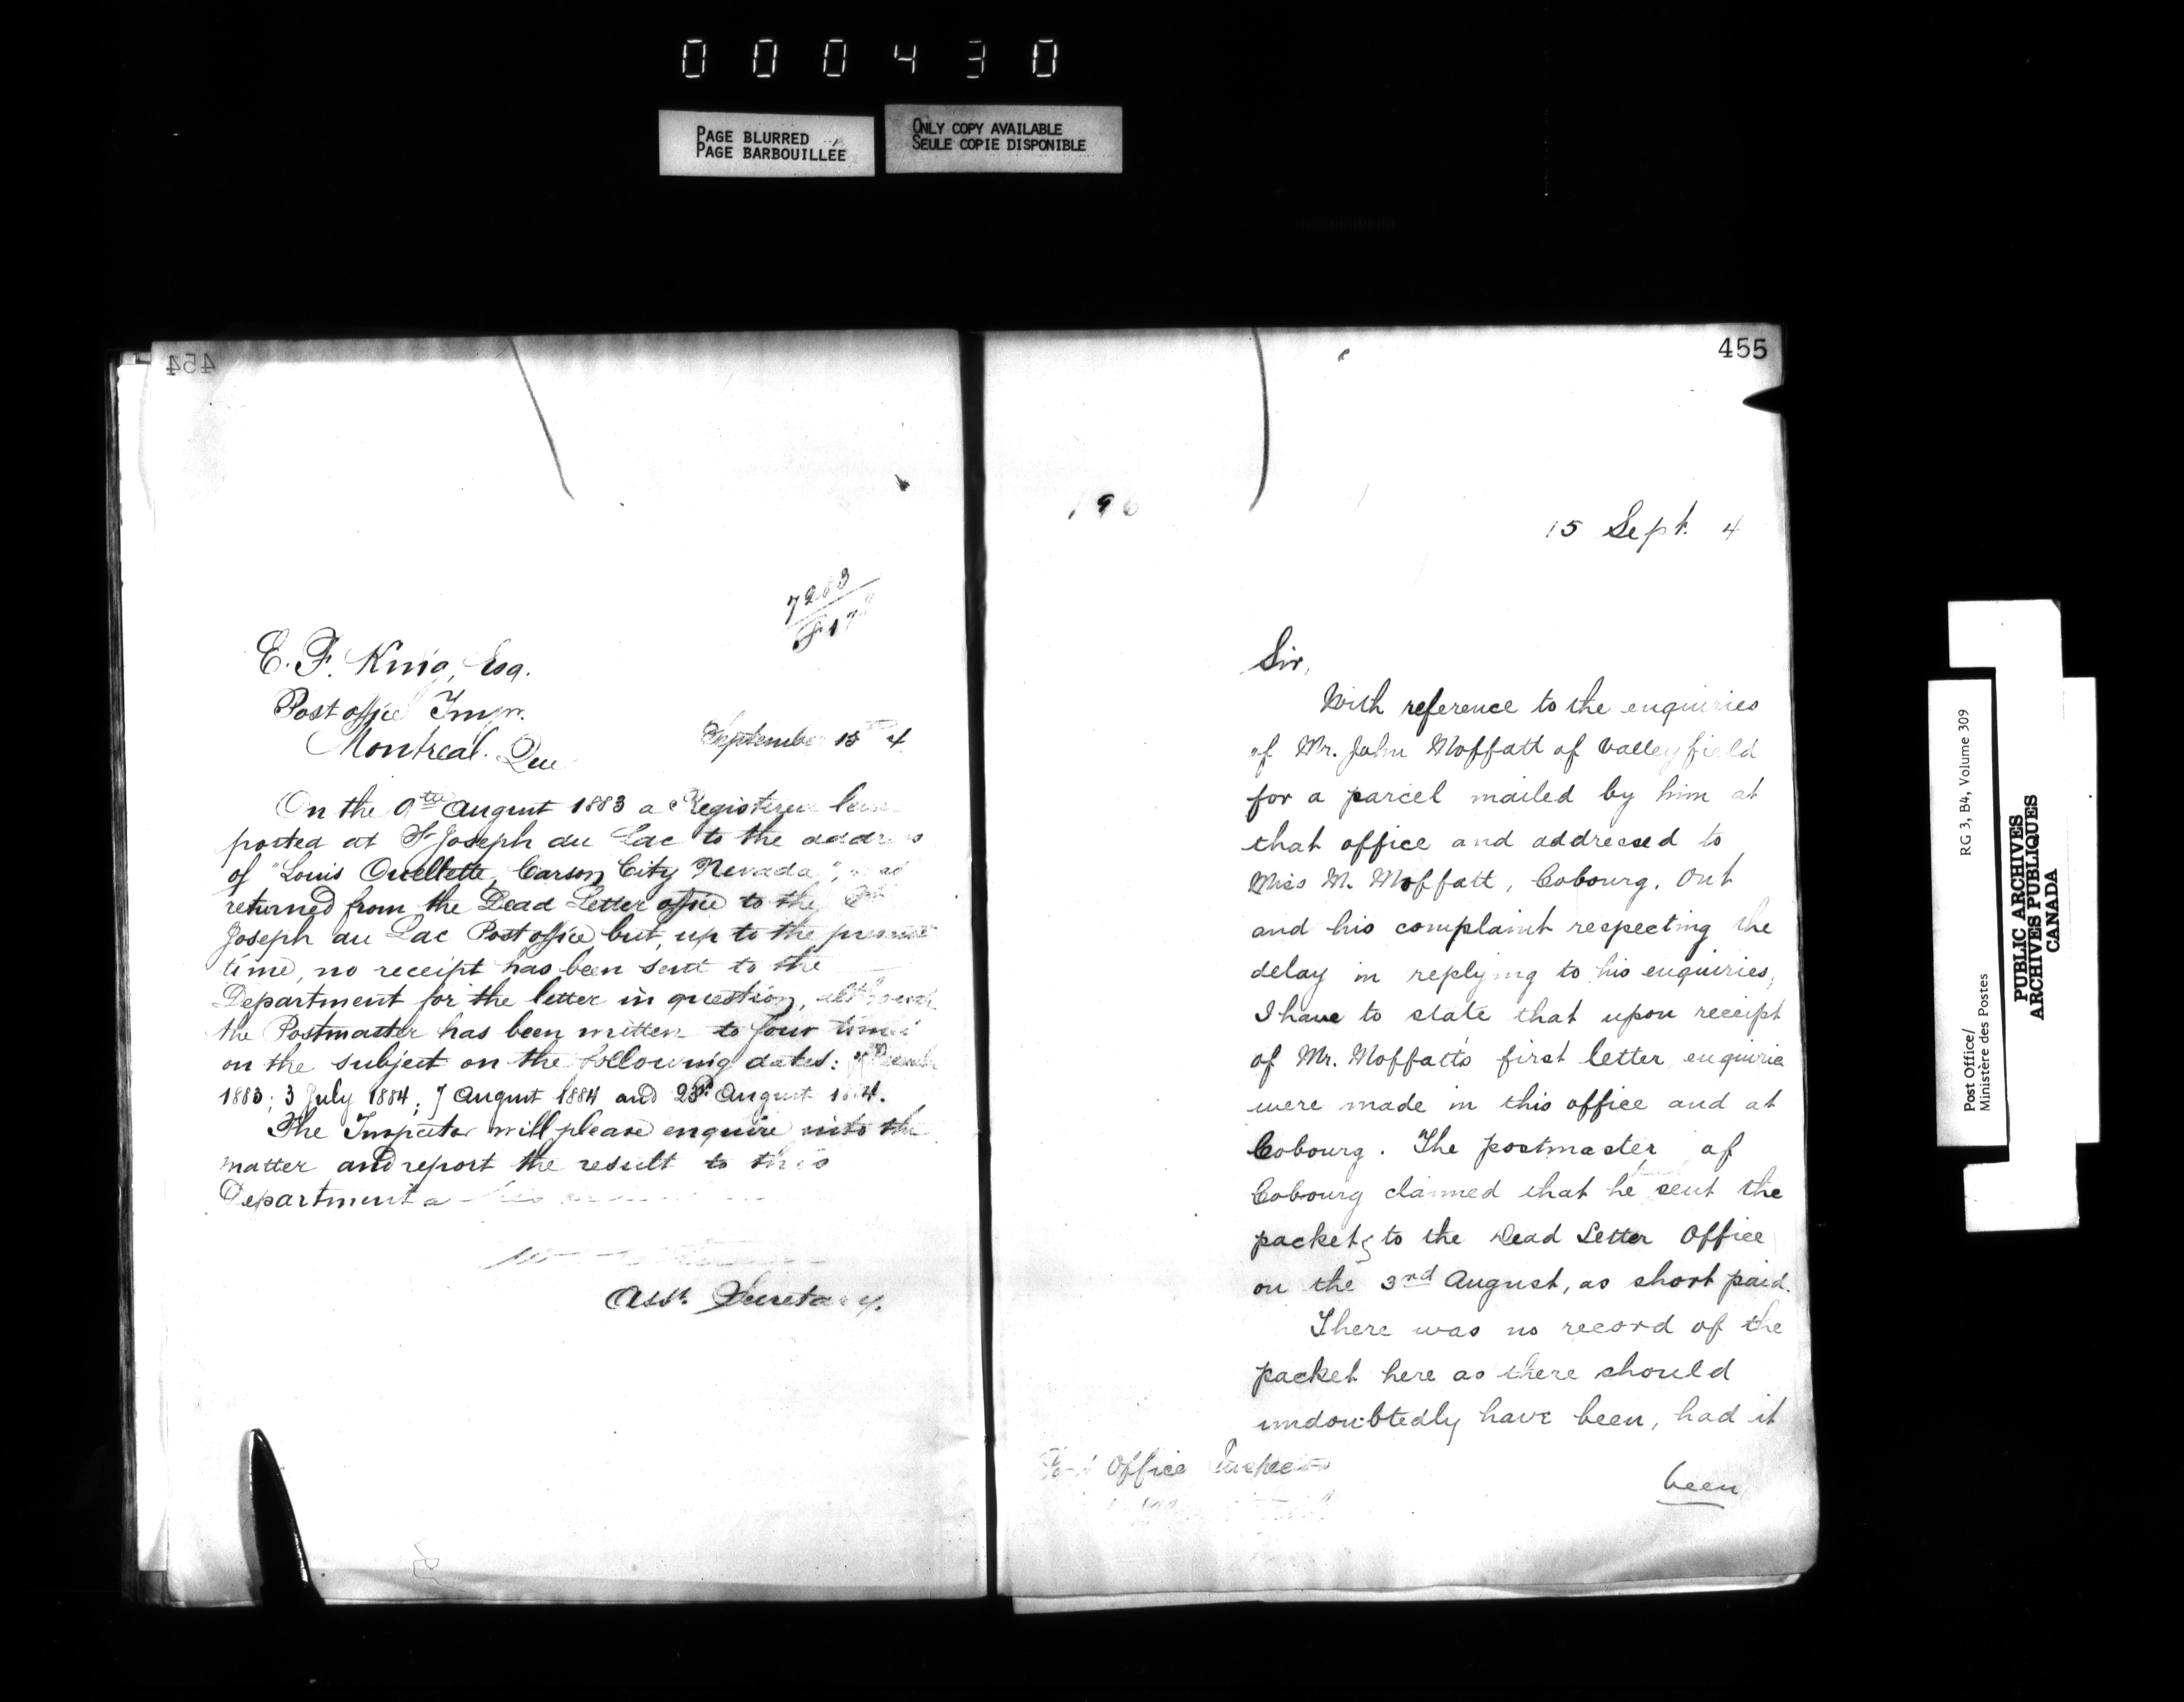 000430
PAGE BLURRED
PAGE BARBOUILLÉE
ONLY COPY AVAILABLE
SEULE COPIE DISPONIBLE
454
E. F. King, Esq.
Post office Inspr.
Montreal. Que
September 15th 4
On the 9th August 1883 a Registered
posted at St Joseph du Lac to the address
of "Louis Ouellette, Carson City Nevada",
returned from the Dead Letter office to the
Joseph du Lac Post office but, up to the present
time, no receipt has been sent to the
Department for the letter in question, although
the Postmaster has been written to four times
on the subject on the following dates:
1883; 3 July 1884; 7 August 1884 and August 1884.
The Inspector will please enquire into the
matter and report the result to this
Department
Asst. Secretary.
455
196
15 Sept. 4
Sir,
With reference to the enquiries
of Mr. John Moffatt of Valleyfield
for a parcel mailed by him at
that office and addressed to
Miss M. Moffatt, Cobourg. Ont
and his complaint respecting the
delay in replying to his enquiries,
I have to state that upon receipt
of Mr. Moffatt's first letter, enquirie
were made in this office and at
Cobourg. The postmaster of
Cobourg claimed that he sent the
packet to the Dead Letter Office
on the 3rd August, as short paid.
There was no record of the
packet here as there should
undoubtedly have been, had it
been
Post Office Inspector
RG 3, B4, Volume 309
Post Office/
Ministère des Postes
PUBLIC ARCHIVES
ARCHIVES PUBLIQUES
CANADA